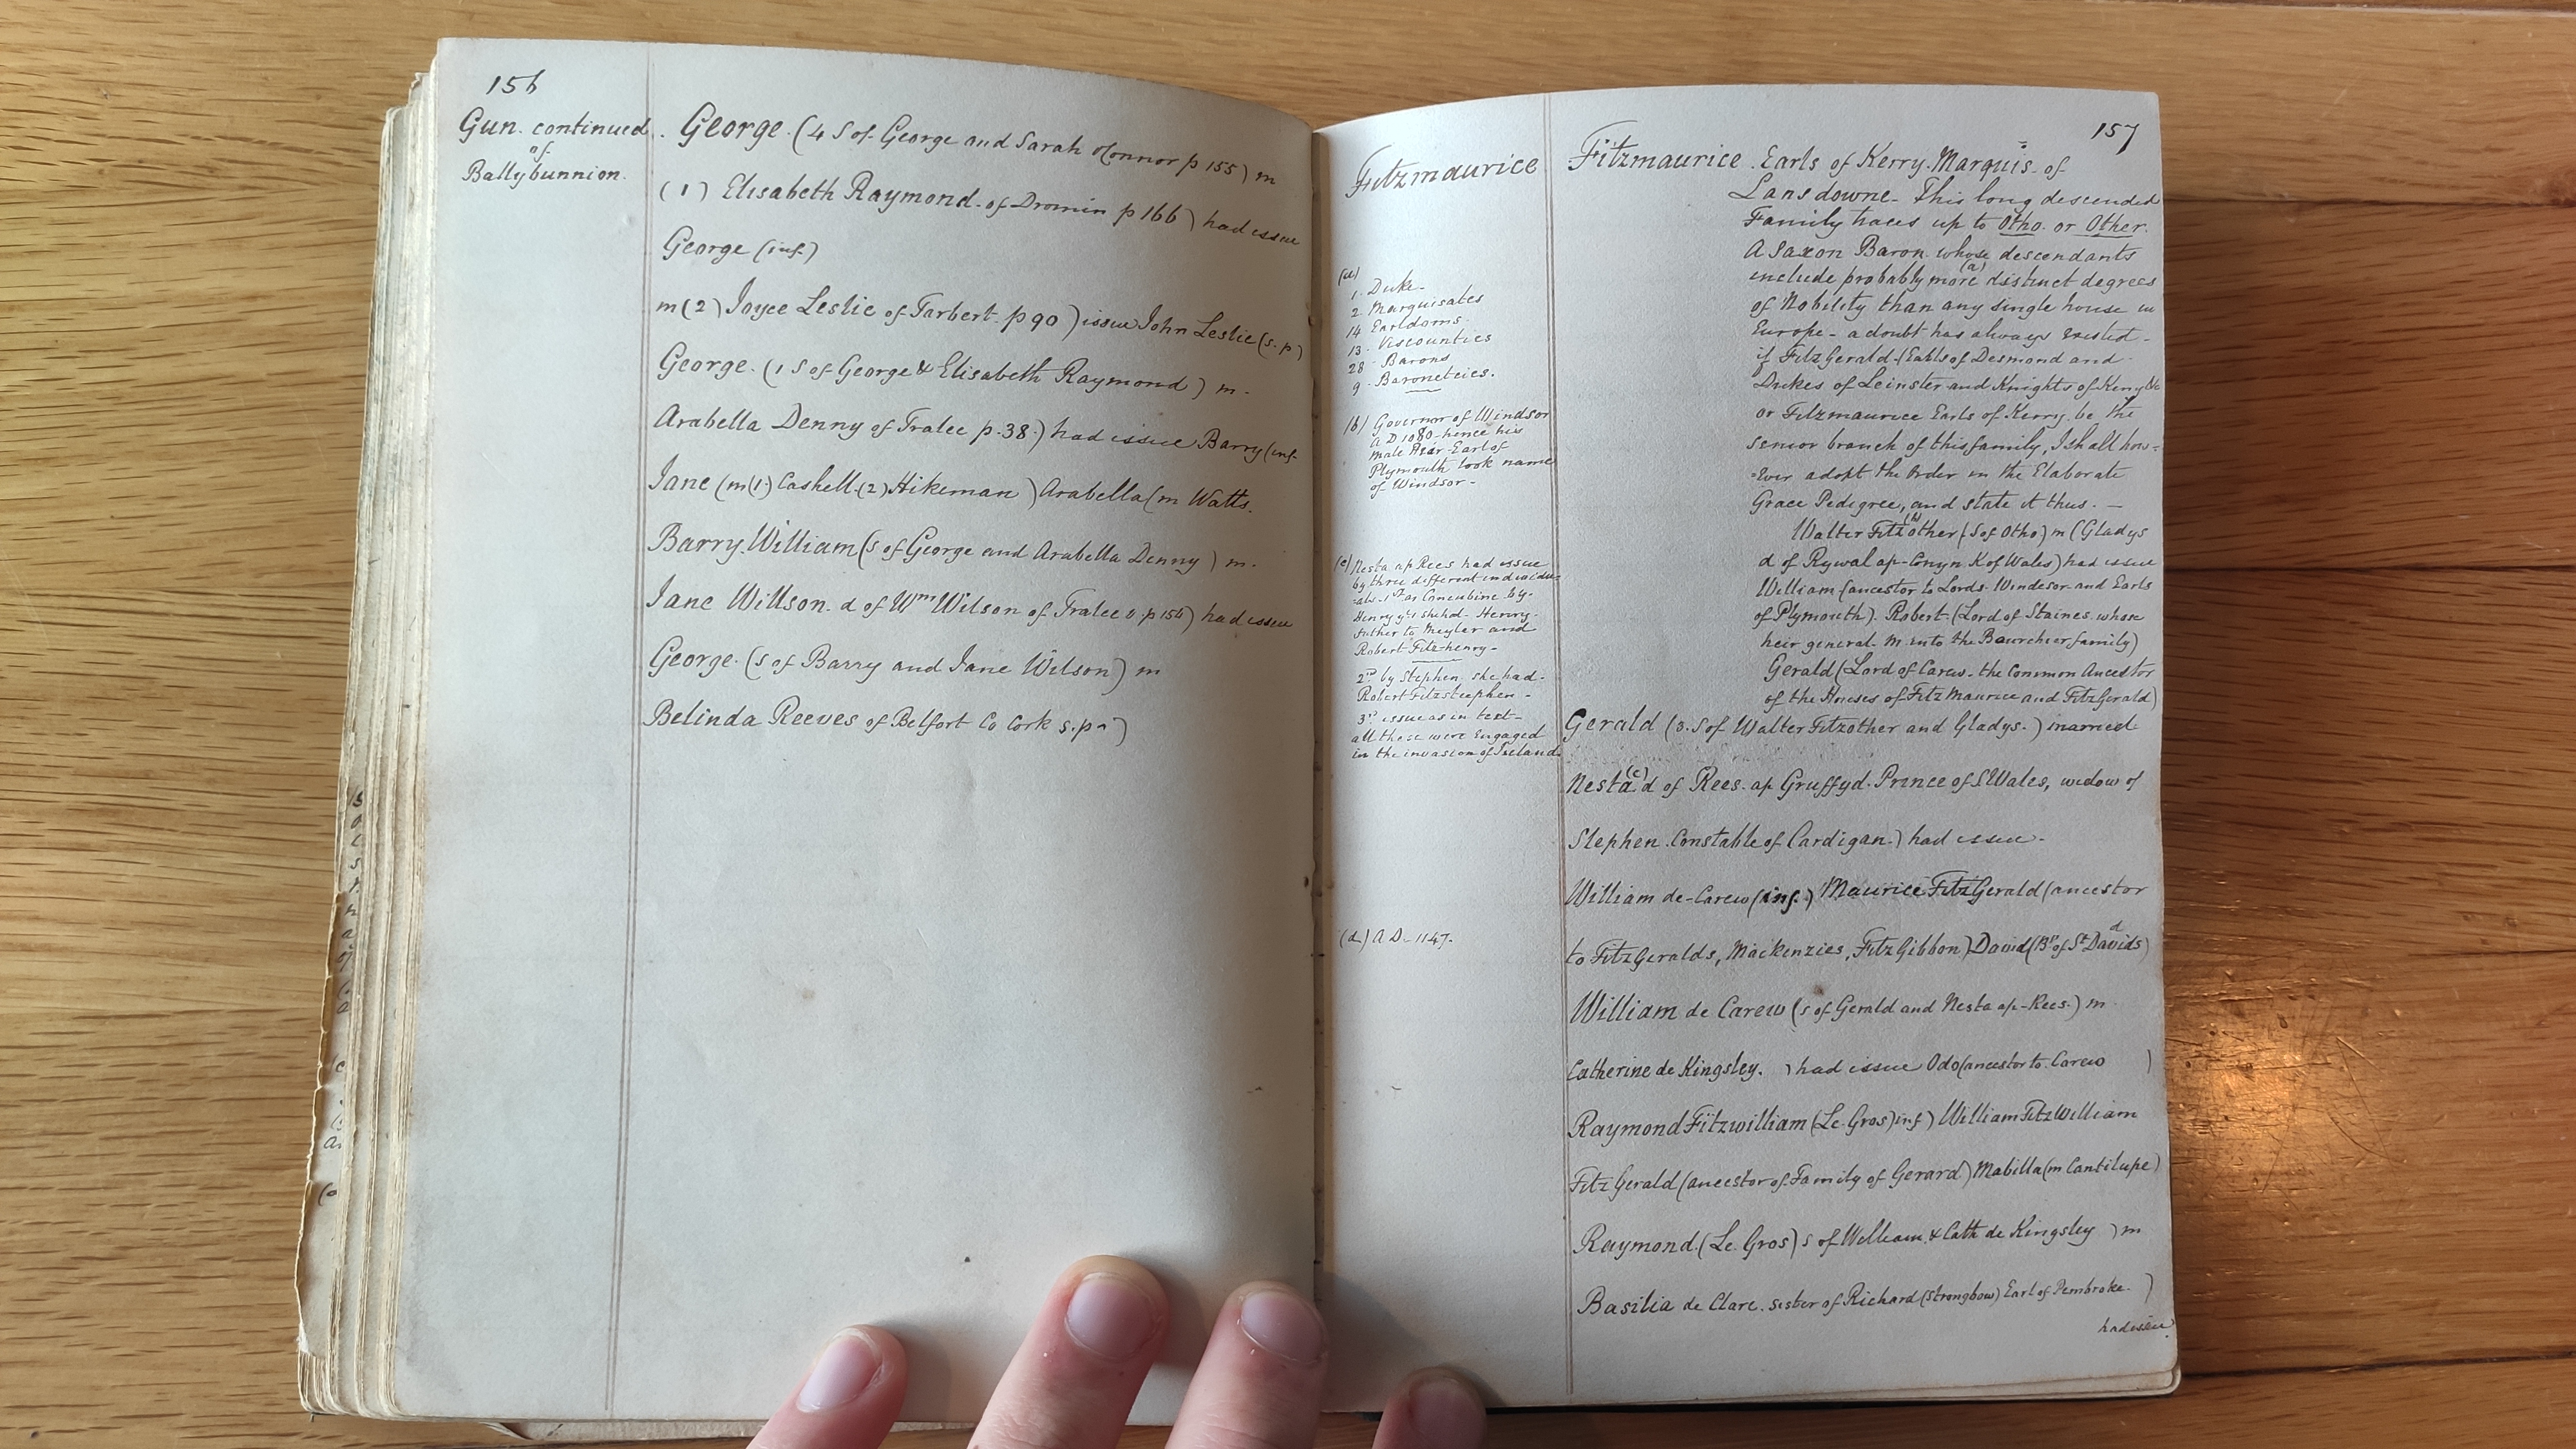 156
Gun. continued.
of
Ballybunnion.
George. (4 S of George and Sarah oConnor p 155) m
(1) Elisabeth Raymond. of Dromin p 166) had issue
George (inf.)
m (2) Joyce Leslie of Tarbert. p 90) issue John Leslie (s.p)
George. (1 S of George & Elisabeth Raymond) m.
Arabella Denny of Tralee p.38.) had issue Barry (inf.
Jane (m (1.) Cashell. (2) Hikeman) Arabella (m Watts.
Barry. William (s of George and Arabella Denny) m.
Jane Willson. d of Wm Wilson of Tralee v. p 156) had issue
George. (s of Barry and Jane Wilson) m
Belinda Reeves of Belfort Co Cork s.p.)
157
Fitzmaurice
(a)
1. Duke.
2. Marquisates
14. Earldoms.
13. Viscounties
28. Barons
9. Baronetcies.
(b) Governor of Windsor
A D 1080 - hence his
male Heir Earl of
Plymouth took name
of Windsor -
(c) Nesta ap Rees had issue
by three different individu-
-als. 1st as Concubine by.
Henry 1st she had. Henry.
father to Meyler and
Robert Fitzhenry -
2nd by Stephen. she had.
Robert Fitzstephen -
3rd issue as in text -
all these were Engaged
in the invasion of Ireland.
(d) A D. 1147.
Fitzmaurice. Earls of Kerry. Marquis of
Lansdowne - This long descended
Family traces up to Otho. or Other.
A Saxon Baron. whose descendants
include probably more (a) distinct degrees
of Nobility than any single house in
Europe - a doubt has always existed -
if FitzGerald - (Earls of Desmond and
Dukes of Leinster and Knights of Kerry &c
or Fitzmaurice Earls of Kerry. be the
senior branch of this family, I shall how-
-ever adopt the Order in the Elaborate
Grace Pedigree, and state it thus. -
Walter Fitzother (b) (S of Otho) m (Gladys
d of Rywal ap-Conyn K of Wales) had issue
William (ancestor to Lords. Windesor and Earls
of Plymouth). Robert. (Lord of Staines. whose
heir general. m into the Bourchier family)
Gerald (Lord of Carew. the Common Ancestor
of the Houses of FitzMaurice and FitzGerald)
Gerald (3. S of Walter Fitzother and Gladys.) married
Nesta (c) d of Rees. ap Gruffyd. Prince of S Wales, widow of
Stephen. Constable of Cardigan.) had issue.
William de-Carew (inf.) Maurice FitzGerald (ancestor
to FitzGeralds, Mackenzies, FitzGibbon) David (Bp of St Davids) d
William de Carew (s of Gerald and Nesta ap-Rees.) m
Catherine de Kingsley. ) had issue Odo (ancestor to. Carew )
Raymond Fitzwilliam (Le Gros) inf) William FitzWilliam
FitzGerald (ancestor of Family of Gerard) Mabilla (m Cantilupe)
Raymond. (Le. Gros) s of William. & Cath de Kingsley ) m
Basilia de Clare. sister of Richard (Strongbow) Earl of Pembroke. )
had issue